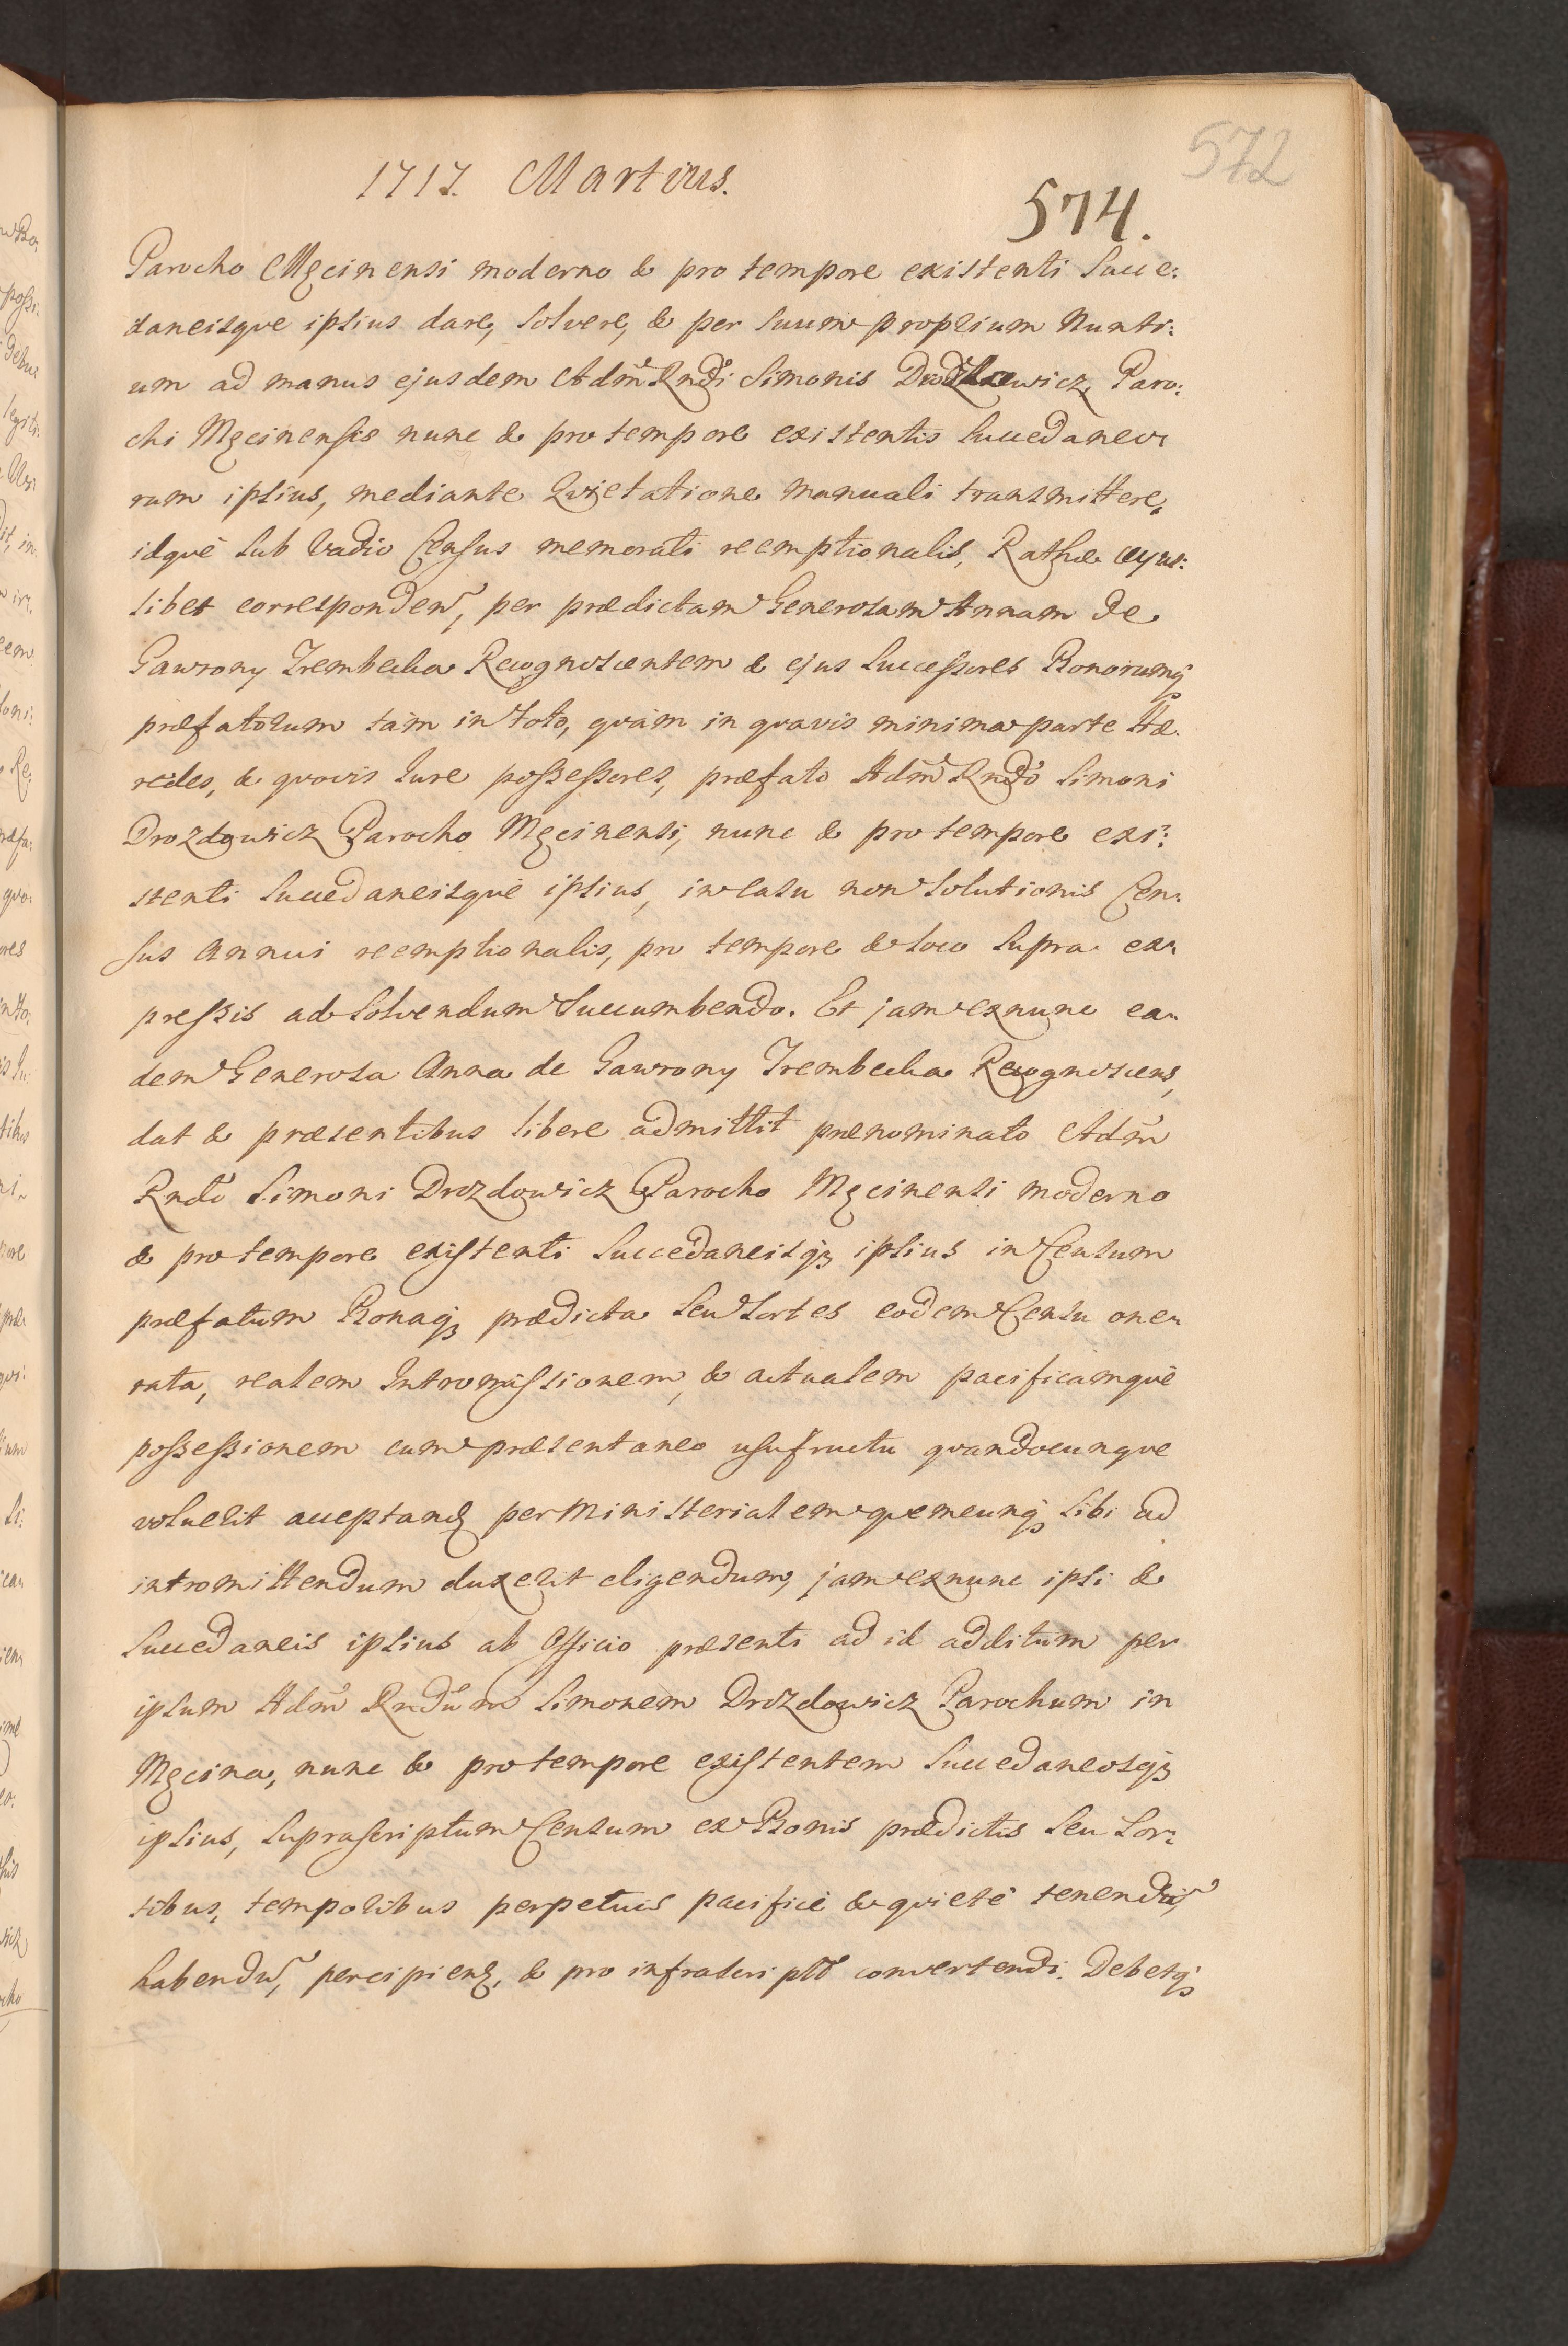 572
1717. Martius.
574.
Parocho Męcinensi moderno & pro tempore existenti Succe:
daneisque ipsius dare, solvere, & per suum proprium Nunti:
um ad manus ejusdem Adm̃ Rndi Simonis Paro:
chi Męcinensis nunc & pro tempore existentis Succedaneo
rum ipsius, mediante Qvietatione manuali transmittere,
idqvè sub vadio Census memorati reemptionalis, Rathæ cujus:
libet corresponden, per prædictam Generosam Annam de
Gawrony Trembecka Recognoscentem & ejus Successores Bonorumq
præfatorum tàm in toto, qvàm in qvavis minima parte Hæ.
redes, & qvovis Jure possessores, præfato Adm̃ Rndo Simoni
Drozdowicz Parocho Męcinensi, nunc & pro tempore exi:
stenti Succedaneisqvè ipsius, in casu non solutionis Cen:
sus annui reemptionalis, pro tempore & loco supra ex:
pressis ad solvendum succumbendo. Et jam exnunc ea:
dem Generosa Anna de Gawrony Trembecka Recognoscens,
dat & præsentibus libere admittit prænominato Adm̃
Rndo Simoni Drozdowicz Parocho Męcinensi moderno
& pro tempore existenti Succedaneisq ipsius in Censum
præfatum Bonaq prædicta seu Sortes eodem Censu one:
rata, realem Intromissionem, & actualem pacificamqvè
possessionem cum præsentaneo usufructu qvandocunqve
voluerit acceptand per Ministerialem qvemcunq sibi ad
intromittendum duxerit eligendum, jam exnunc ipsi &
Succedaneis ipsius ab Officio præsenti ad id additum per
ipsum Adm̃ Rndum Simonem Drozdowicz Parochum in
Męcina, nunc & pro tempore existentem Succedaneosq
ipsius, suprascriptum Censum ex Bonis prædictis seu Sor:
tibus, temporibus perpetuis pacificè & qvietè tenend
habendu, percipiend, & pro infrascripto convertendi. Debetq